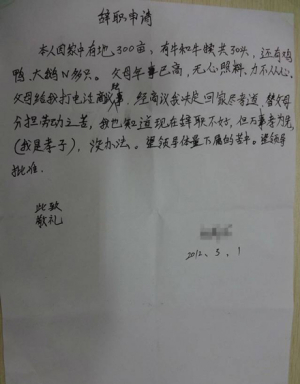 辞职申请
本人因家中有地300亩,有牛和牛犊共30头,还有鸡
鸭、大鹅N多只。父母年事已高,无心照料、力不从心。
父母给我打电话商议然事,经商议我决定回家尽孝道,替父母
分担劳动之苦,我也知道现在辞职不好,但万事孝为先
(我是孝子),没办法。望领导体量下属的苦中。望领导
批准。
此致
敬礼
2012、5、1